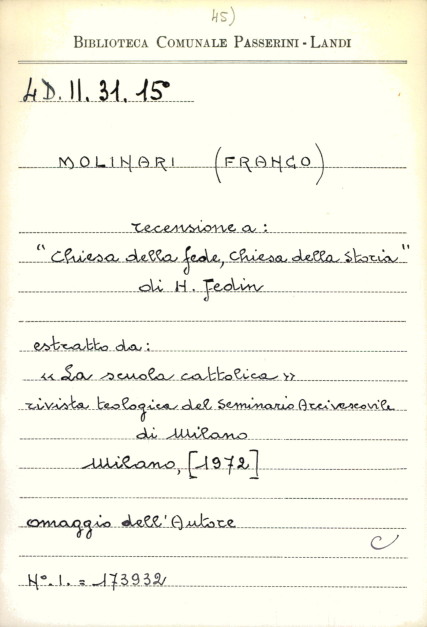 45)
BIBLIOTECA COMUNALE PASSERINI-LANDI
4D. II. 31. 15
MOLINARI (FRANCO)
recensione a:
"Chiesa della fede, Chiesa della Storia"
di H. Jedin
estratto da:
« La scuola cattolica »
rivista teologica del Seminario Arcivescovile
di Milano
Milano, [1972]
omaggio dell'Autore
C
N°. I. = 173932